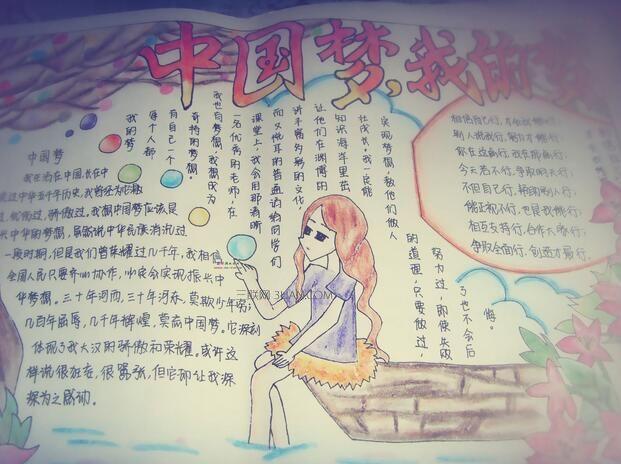 中国梦,我的梦
中国梦
我生活在中国,长在中
过中华五千年历史,我曾经为它
过,忧伤过,骄傲过,我想中国梦应该是
兴中华的梦想,虽然说中华民族消沉过
一段时期,但是我们曾荣耀过几千年,我相信
全国人民只要齐心协作,必定会实现振兴中
华梦想。三十年河西,三十年河东,莫欺少年穷;
几百年屈辱,几千年辉煌,莫葬中国梦。它深刻
体现了我大汉的骄傲和荣耀。或许这
样说很狂妄,很嚣张,但它却让我深
深为之感动。
我的梦
每个人都
有自己一个
奇特的梦想,
我也有梦想,我想成为
一名优秀的老师,在
课堂上,我会用那清晰
而又悦耳的普通话给同学们
讲丰富多彩的文化
让他们在渊博的
知识海洋里茁
壮成长,我一定能
实现梦想,教他们做人
的道理,只要做过,
努力过,即使失败
了也不会后
悔。
相信自己行,才会我能行;
别人说我行,努力才能行;
你在这面行,我在那面行;
今天若不行,争取明天行;
不但自己行,帮助别人行;
能正视不行,也是我能行;
相互支持行,合作大家行;
争取全面行,创造才最行。
三联网 3LIAN.COM